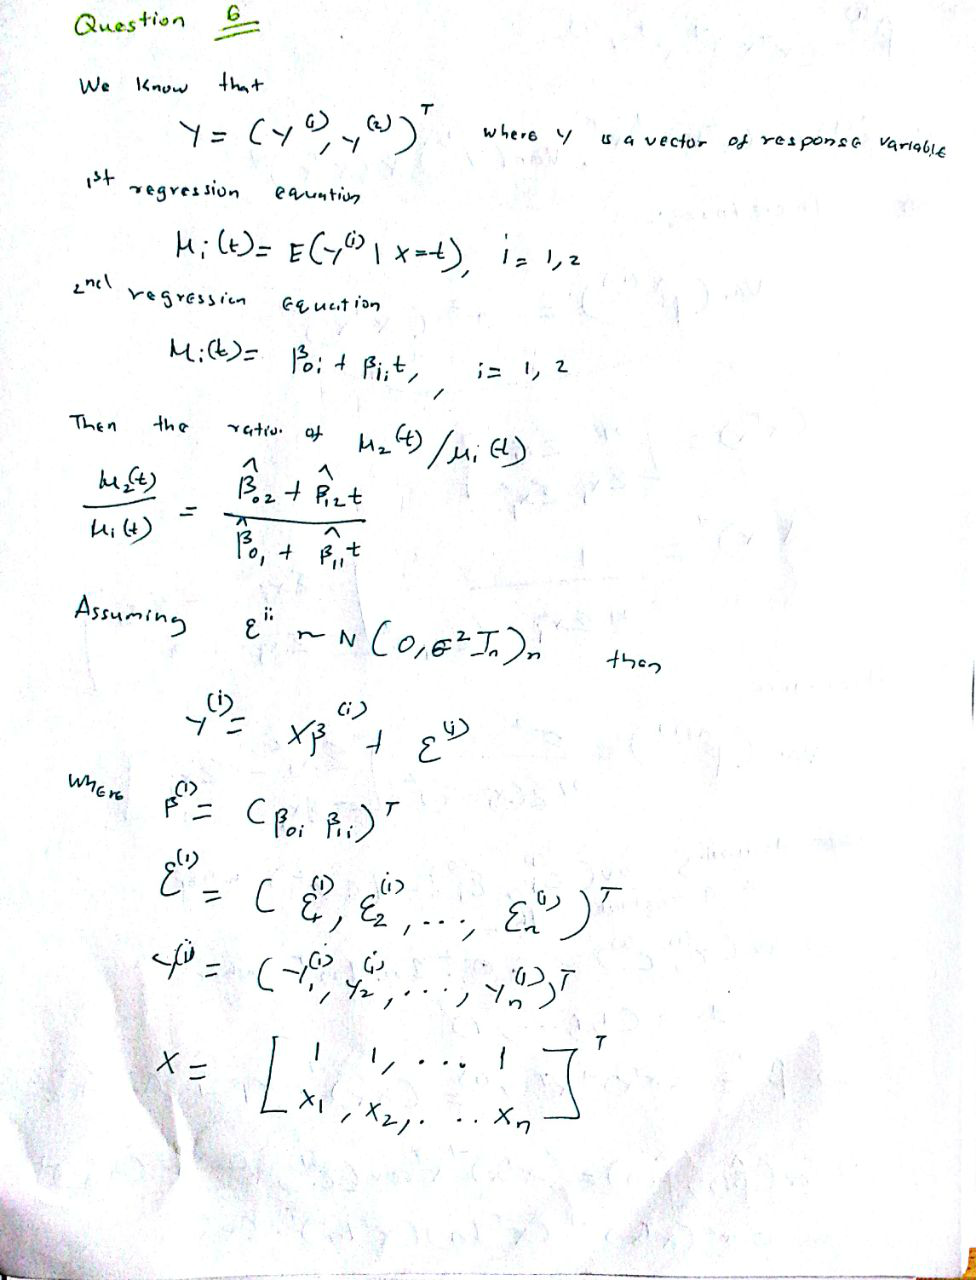 Question 6
We Know that
Y = (Y^(1), Y^(2))^T where Y is a vector of response variable
1st regression equation
μ_i(t) = E(Y^(i) | X=t), i = 1,2
2nd regression equation
μ_i(t) = β_0i + β_1i t, , i = 1, 2
Then the ratio of μ_2(t)/μ_1(t)
μ_2(t)/μ_1(t) = (β̂_02 + β̂_12 t)/(β̂_01 + β̂_11 t)
Assuming ε^ii ~ N(0, σ² I_n)_n then
Y^(i) = Xβ^(i) + ε^(i)
Where β^(i) = (β_0i β_1i)^T
ε^(i) = (ε_1^(i), ε_2^(i), ..., ε_n^(i))^T
Y^(i) = (Y_1^(i), Y_2^(i), ..., Y_n^(i))^T
X = [ 1 1, ... 1
x_1, x_2, ... x_n ]^T